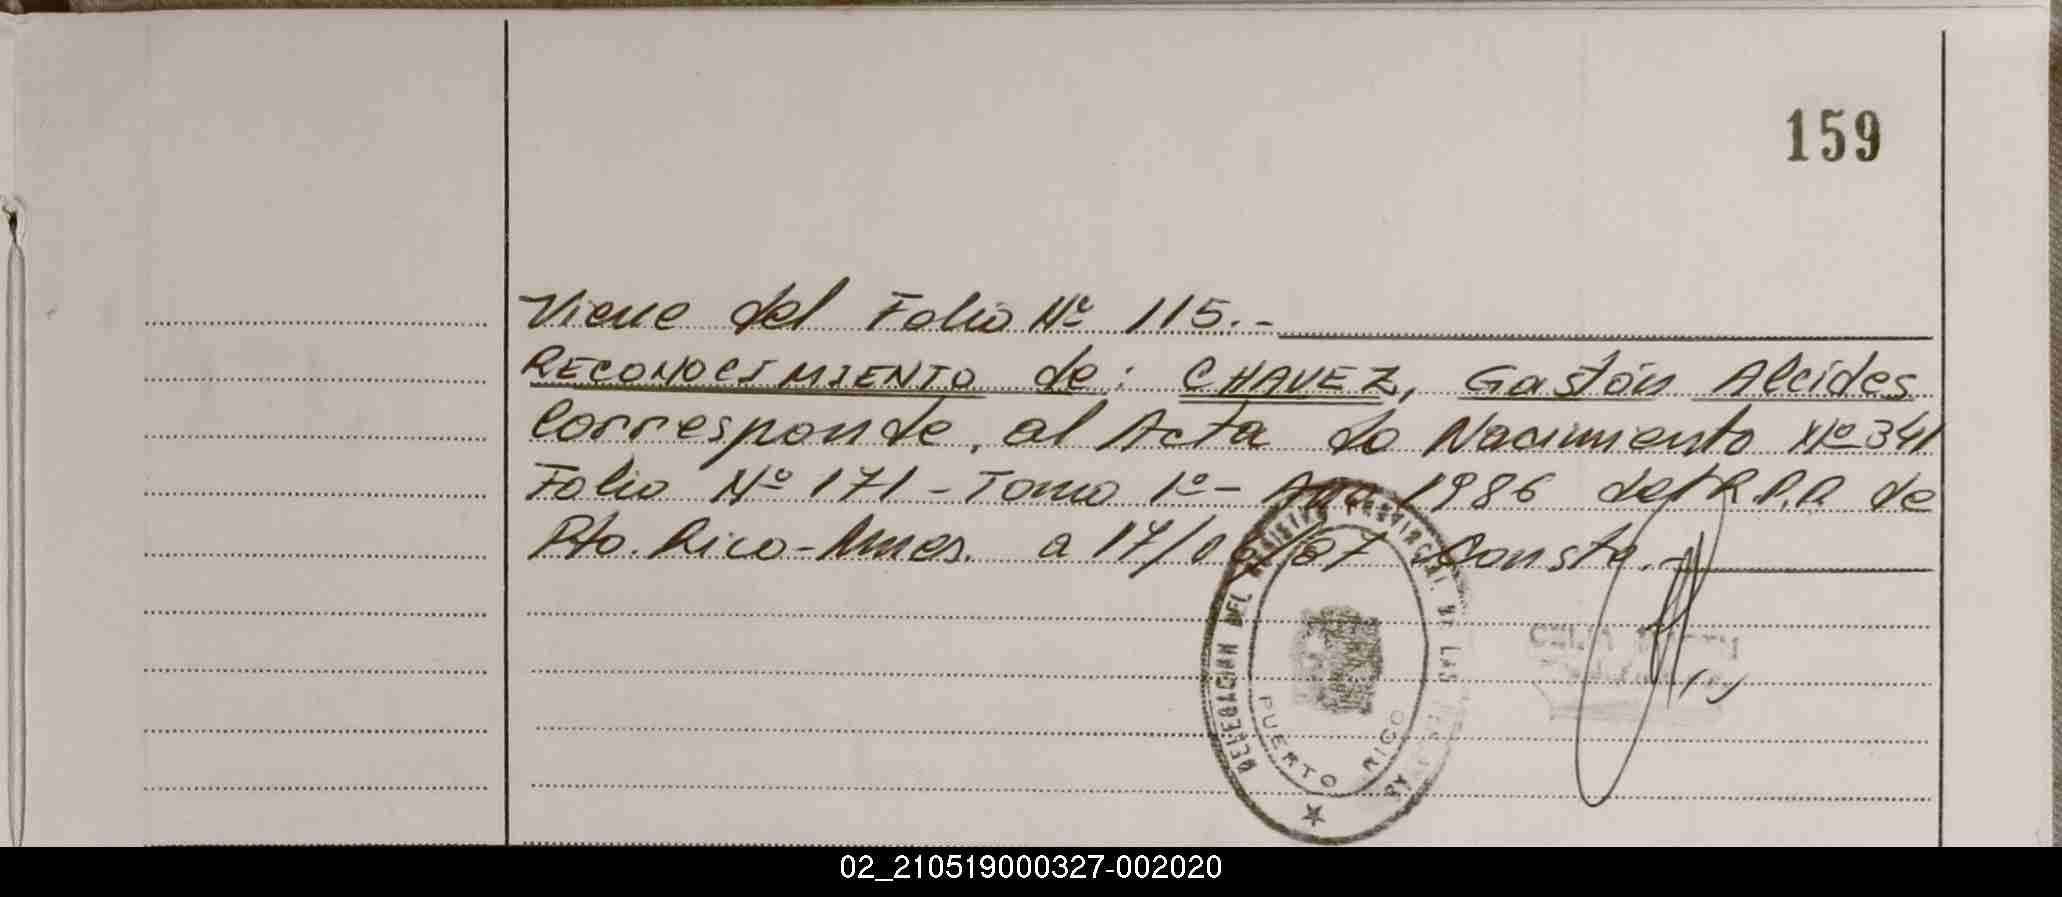 159
Viene del Folio Nº 115.-
RECONOCIMIENTO de: CHAVEZ, Gastón Alcides
Corresponde, al Acta de Nacimiento Nº 341
Folio Nº 171 - Tomo 1º - Año 1986 del R.P.P. de
Pto. Rico - Mnes. a 17/06/87 Conste.-
DELEGACION DEL REGISTRO PROVINCIAL DE LAS
PUERTO RICO
CELIA
02_210519000327-002020